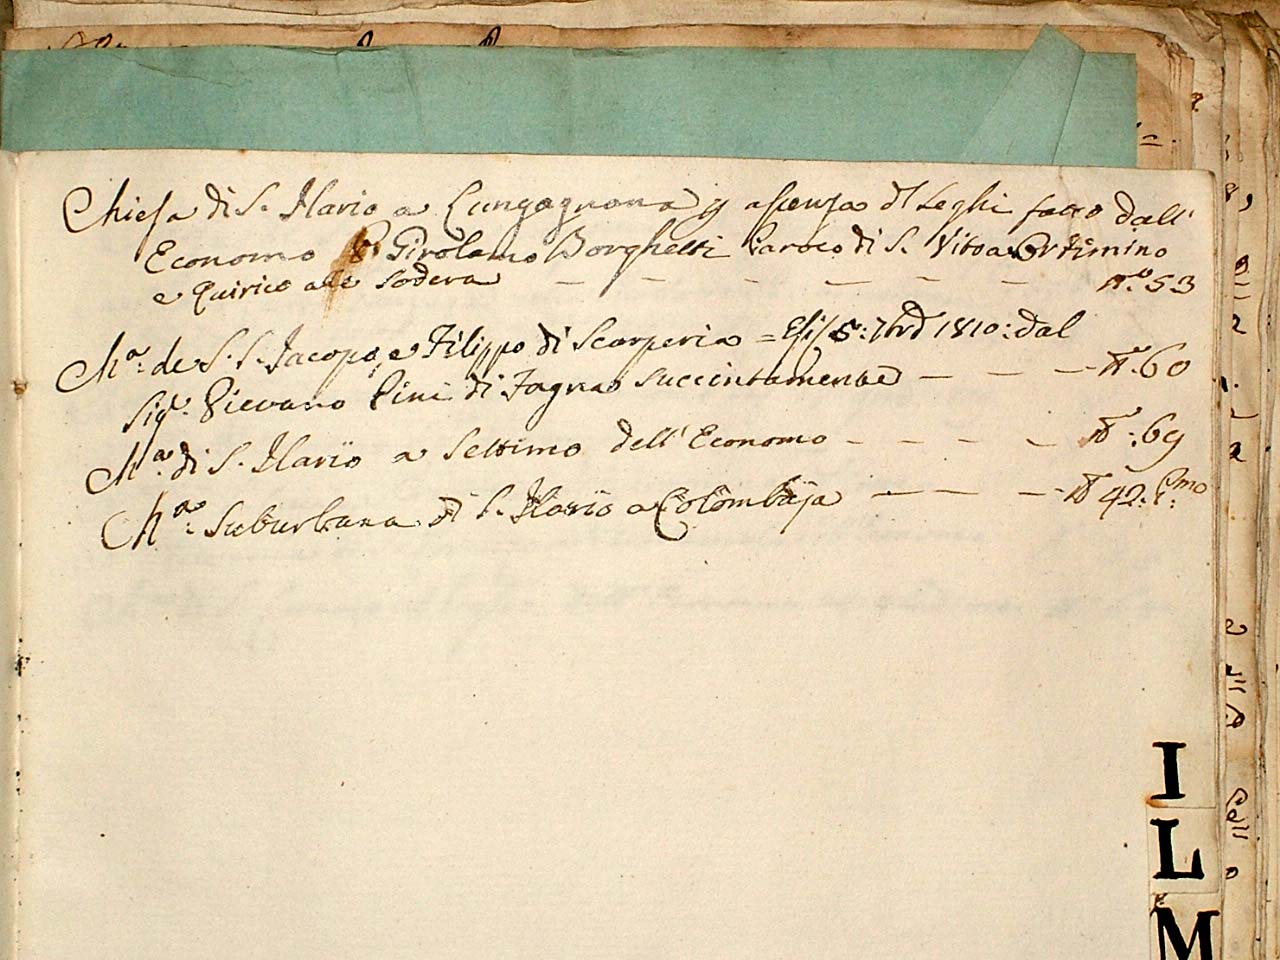 Chiesa di S. Ilario a Lungagnana p assenza dl Leghi fatto dall'
Economo Girolamo Borghetti Paroco di S. Vito a Ortimino
e Quirico alle Sodera — — — — — — N.º 53
Ch.ª de S. S. Jacopo, e Filippo di Scarperia = 5: 7bre 1810: dal
Sig.r Pievano Pini di Fagna succintamente — — — N.º 60
Ch.ª di S. Ilario a Settimo dell' Economo — — — — N.º: 69
Ch.ª Suburbana di S. Ilario a Colombaja — — — N.º 42.
I
L
M